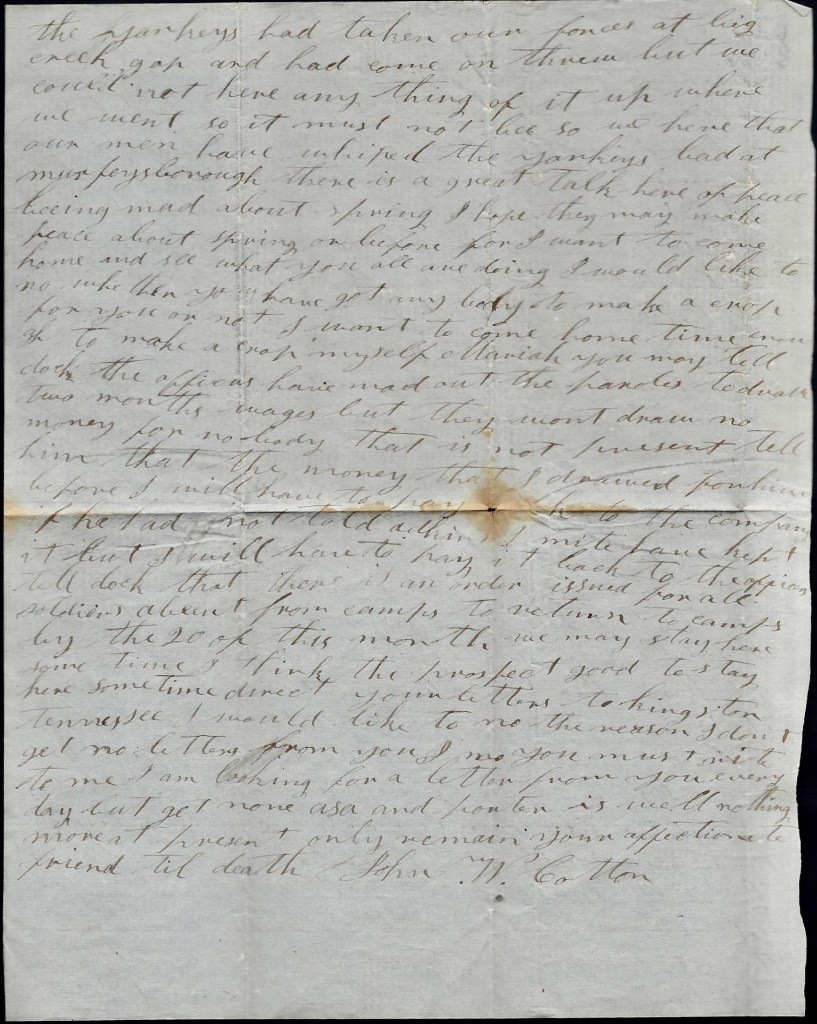 the yankeys had taken our forces at big
creek gap and had come on threw but we
could not here any thing of it up where
we went so it must not bee so we here that
our men have whiped the yankeys bad at
murfeysborough there is a great talk here of peace
beeing mad about spring I hope they may make
peace about spring or before for I want to come
home and see what you all are doing I would like to
no whether you have got any body to make a crop
for you or not I want to come home time enou
gh to make a crop myself Mariah you may tell
dock the officers have mad out the paroles to draw
two months wages but they wont draw no
money for no body that is not present tell
him that the money that I drawed for him
before I will have to pay back to the company
if he had not told adkins I mite have kept
it but I will have to pay it back to the officers
tell dock that there is an order issued for all
soldiers absent from camps to return to camps
by the 20 of this month we may stay here
some time I think the prospect good to stay
here some time direct your letters to kingston
tennessee I would like to no the reason I dont
get no letters from you I no you must rite
to me I am looking for a letter from you every
day but get none asa and porter is well nothing
more at present only remain your affectionate
friend til death John W. Cotton